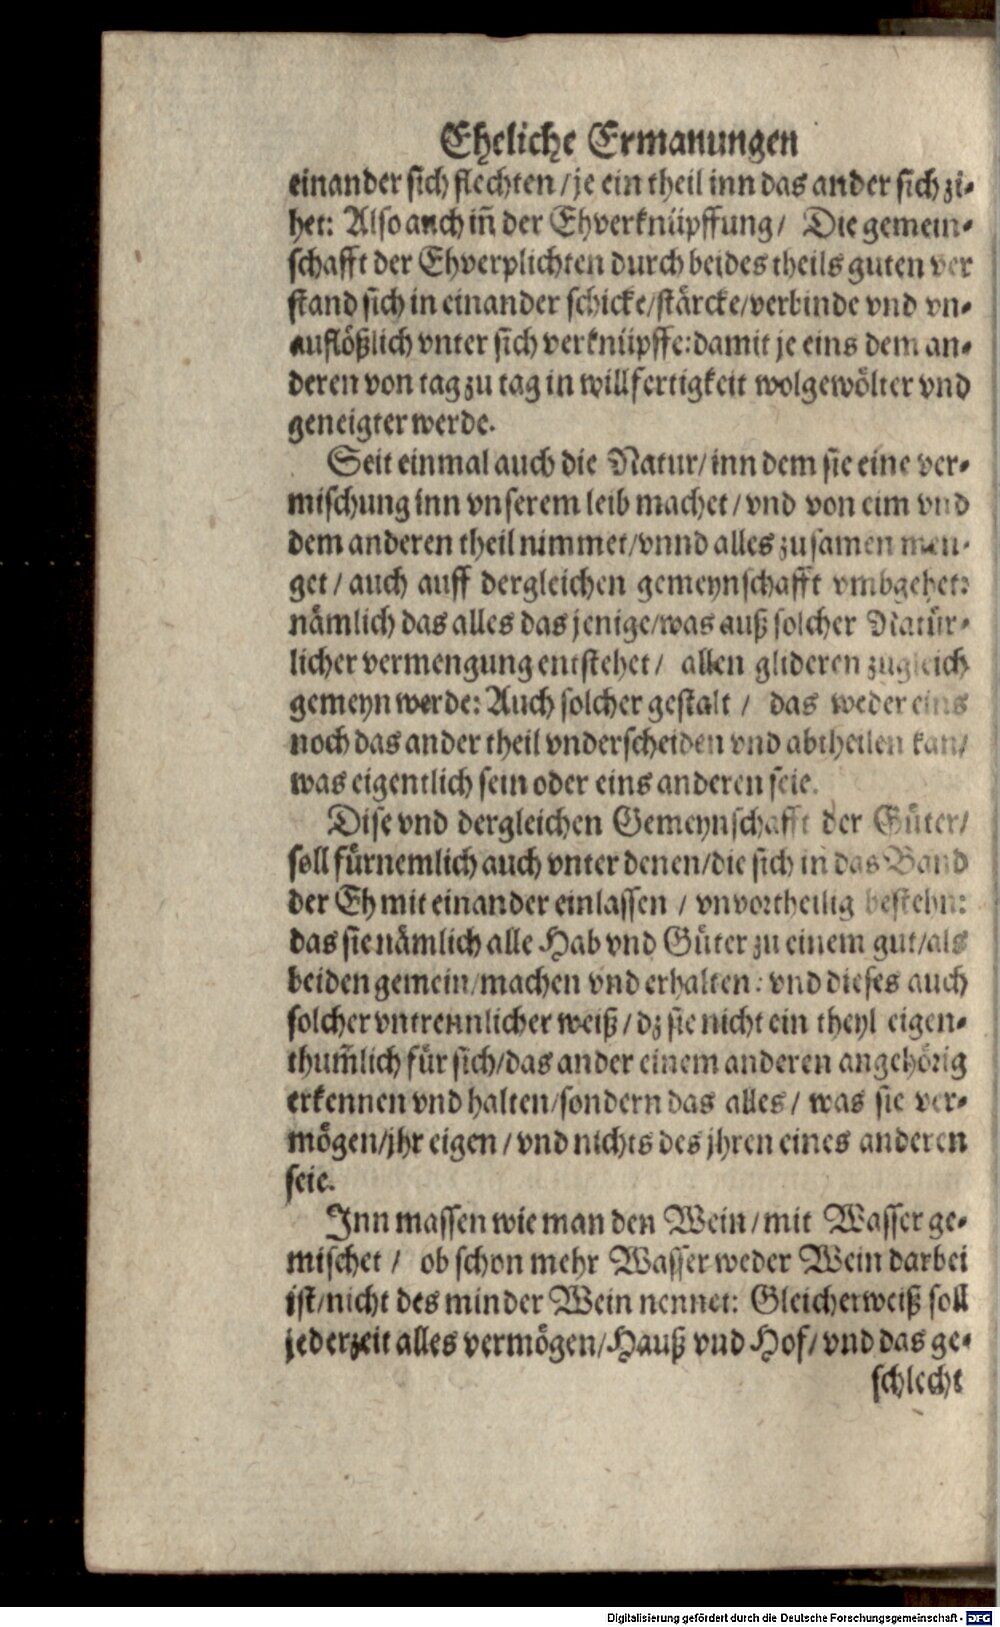 Eheliche Ermanungen
einander sich flechten/je ein theil inn das ander sich zi-
het: Also auch iñ der Ehverknüpffung/ Die gemein-
schafft der Ehverplichten durch beides theils guten ver
stand sich in einander schicke/stärcke/verbinde vnd vn-
auflößlich vnter sich verknüpffe:damit je eins dem an-
deren von tag zu tag in willfertigkeit wolgewölter vnd
geneigter werde.
Seit einmal auch die Natur/inn dem sie eine ver-
mischung inn vnserem leib machet/vnd von eim vnd
dem anderen theil nimmet/vnnd alles zusamen men-
get/ auch auff dergleichen gemeynschafft vmbgehet:
nämlich das alles das jenige/was auß solcher Natür-
licher vermengung entstehet/ allen glideren zugleich
gemeyn werde: Auch solcher gestalt / das weder eins
noch das ander theil vnderscheiden vnd abtheilen kan/
was eigentlich sein oder eins anderen seie.
Dise vnd dergleichen Gemeynschafft der Güter/
soll fürnemlich auch vnter denen/die sich in das Band
der Eh mit einander einlassen / vnvortheilig bestehn:
das sie nämlich alle Hab vnd Güter zu einem gut/als
beiden gemein/machen vnd erhalten: vnd dieses auch
solcher vntrennlicher weiß/dz sie nicht ein theyl eigen-
thum̃lich für sich/das ander einem anderen angehörig
erkennen vnd halten/sondern das alles/ was sie ver-
mögen/jhr eigen/vnd nichts des jhren eines anderen
seie.
Inn massen wie man den Wein/mit Wasser ge-
mischet / ob schon mehr Wasser weder Wein darbei
ist/nicht des minder Wein nennet: Gleicherweiß soll
jederzeit alles vermögen/Hauß vnd Hof/vnd das ge-
schlecht
Digitalisierung gefördert durch die Deutsche Forschungsgemeinschaft - DFG